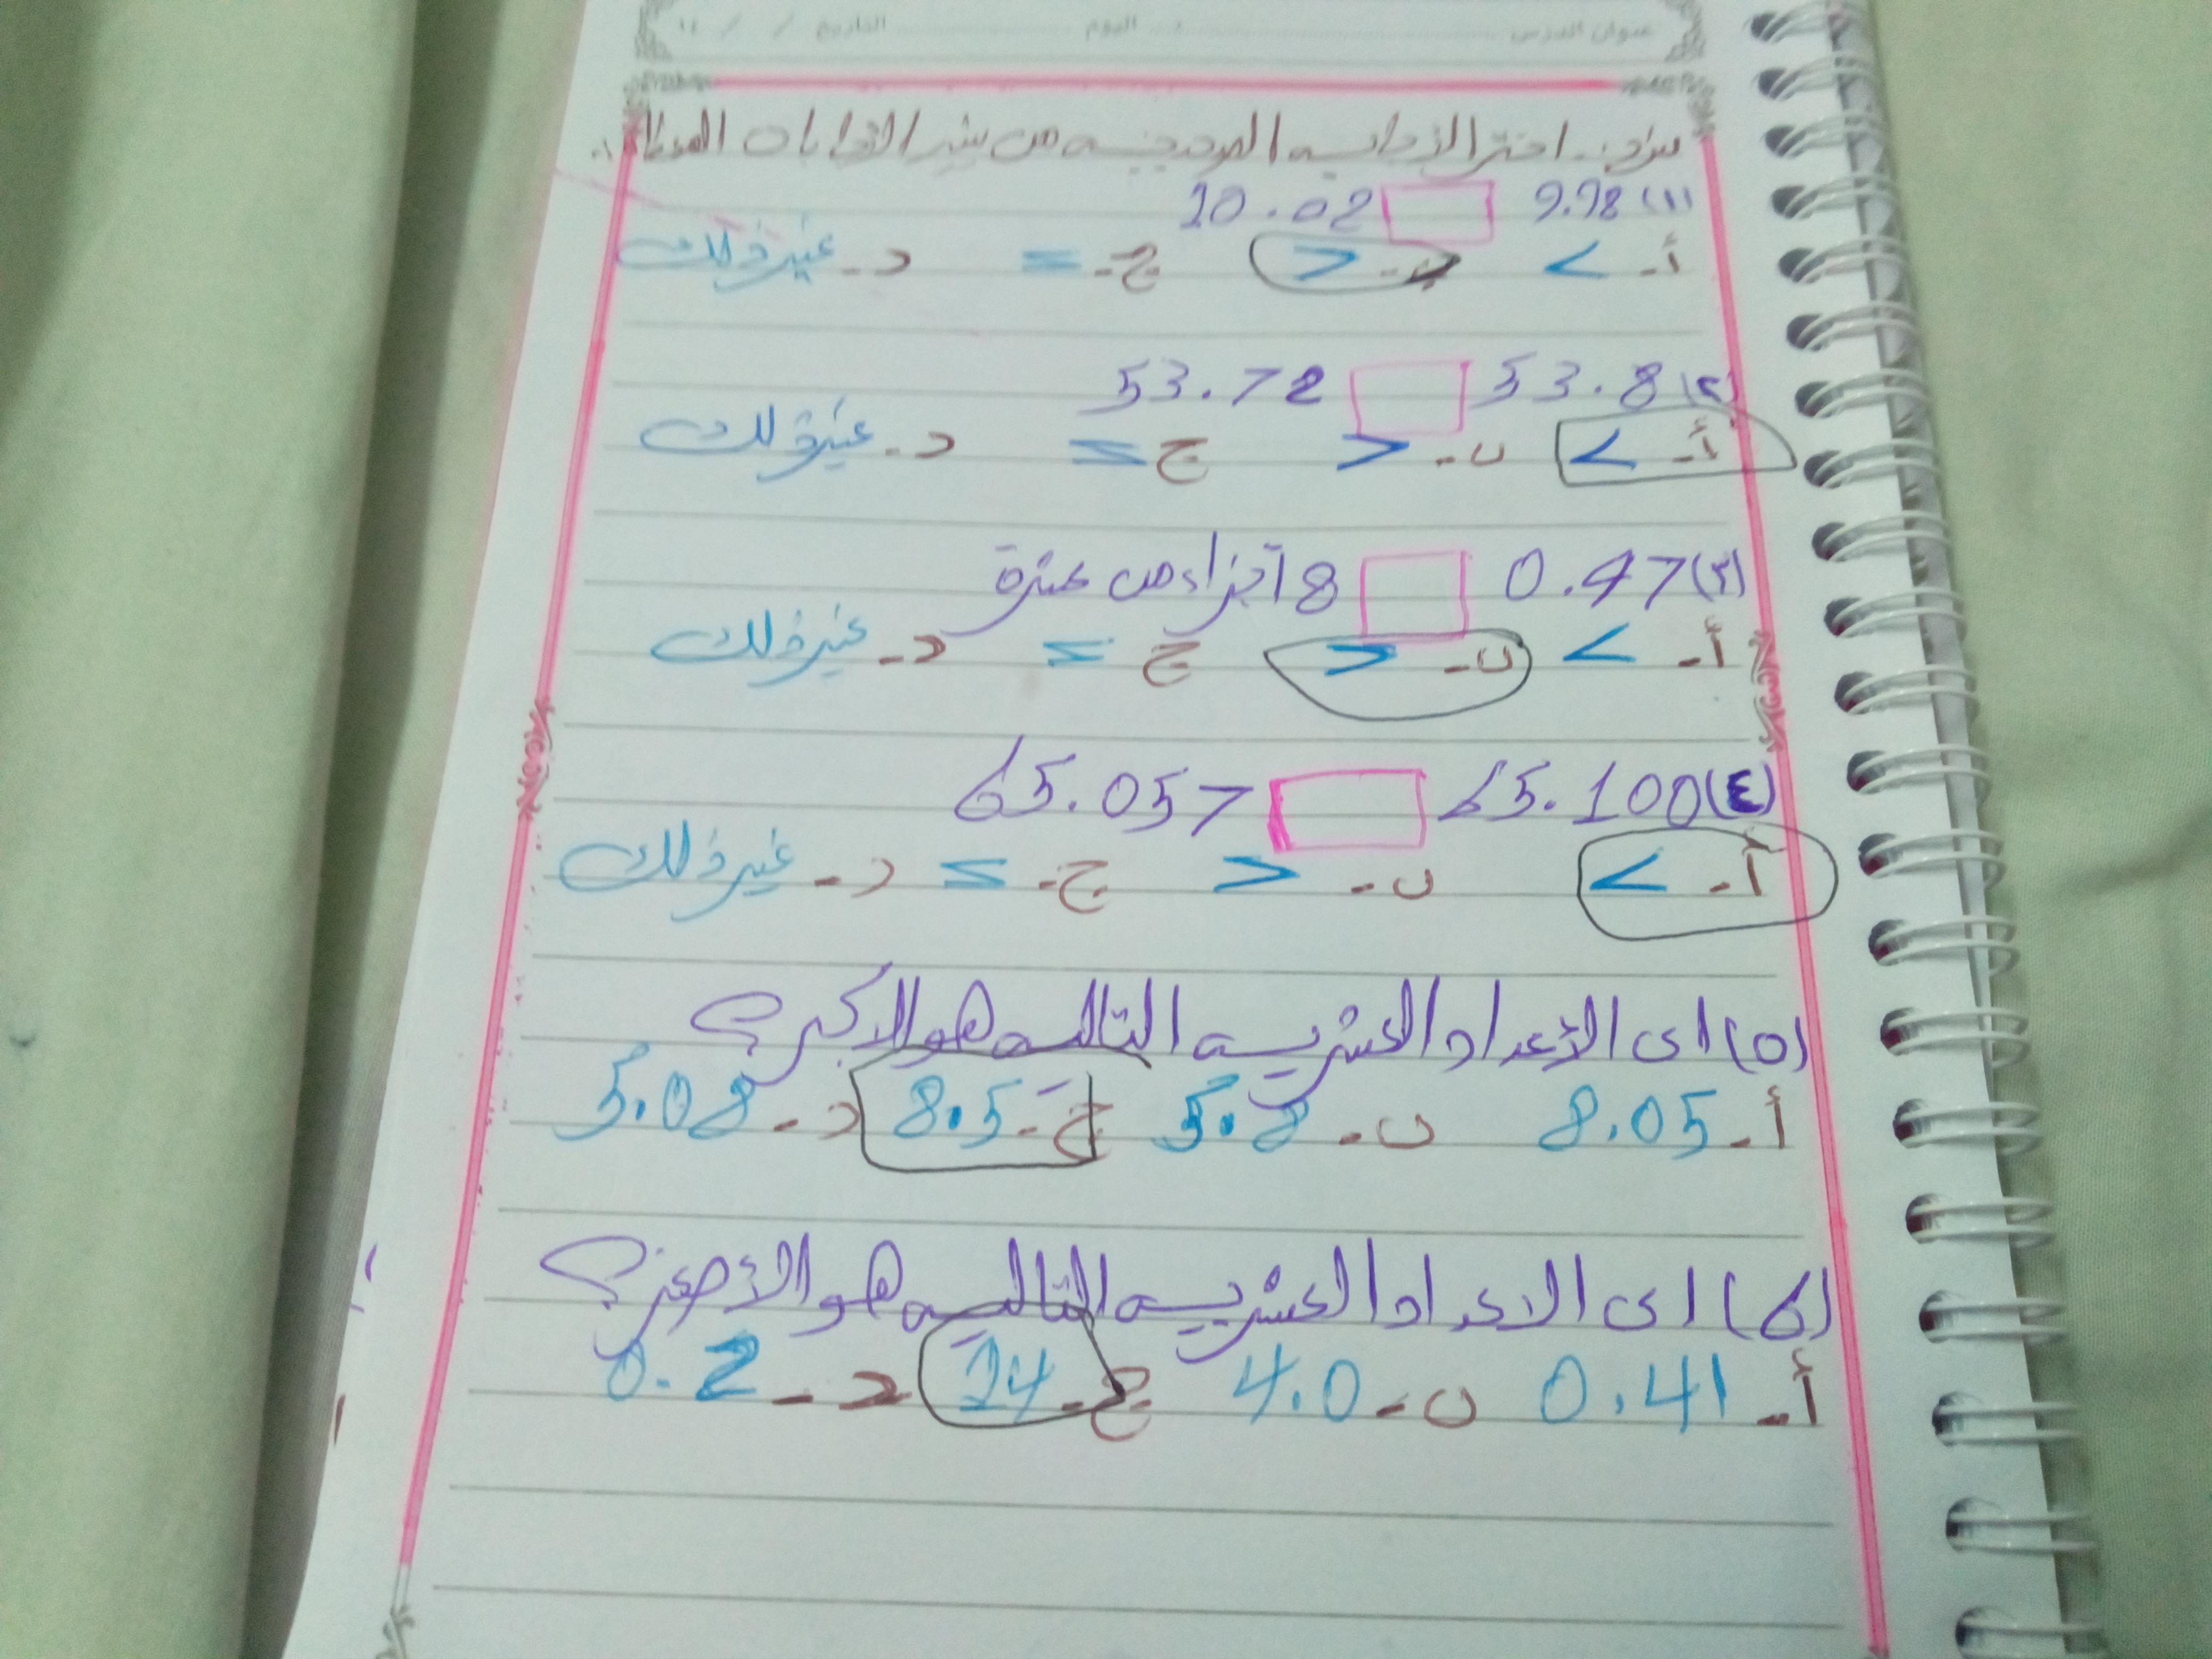 عنوان الدرس اليوم التاريخ / / ١٤
اختر الإجابه الصحيحه من بين الإجابات
(١) 9.98 10.02
أ- < ب- > ج- = د- غير ذلك
(٢) 53.8 53.72
أ- < ب- > ج = د- غير ذلك
(٣) 0.47 8 أجزاء من عشرة
أ- < ب- > ج = د- غير ذلك
(٤) 65.100 65.057
أ- < ب- > ج- = د- غير ذلك
(٥) اى الأعداد العشريه التاليه هو الاكبر؟
أ- 8.05 ب- 5.8 ج- 8.5 د- 5.08
(٦) اى الاعداد العشريه التاليه هو الأصغر؟
أ- 0.41 ب- 4.0 ج- 14 د- 0.2